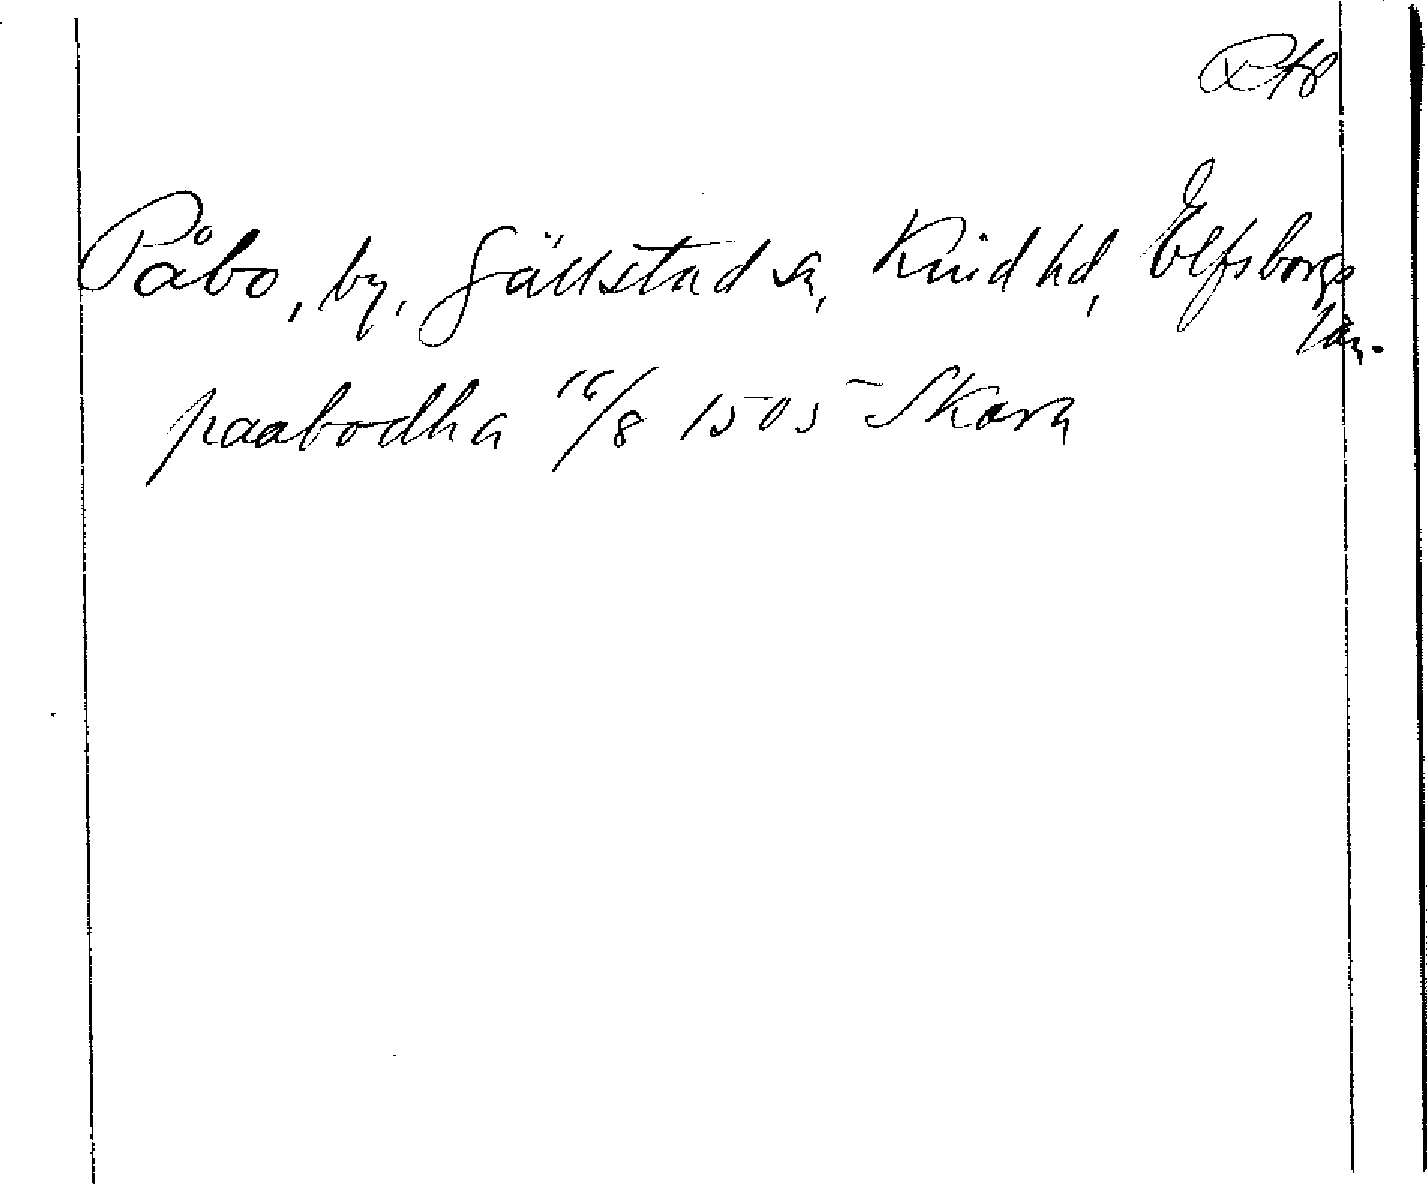 Påbo, by, Gällstad sn, Kind hd, Elfsborgs
län.
paabodha 16/8 1505 Skara